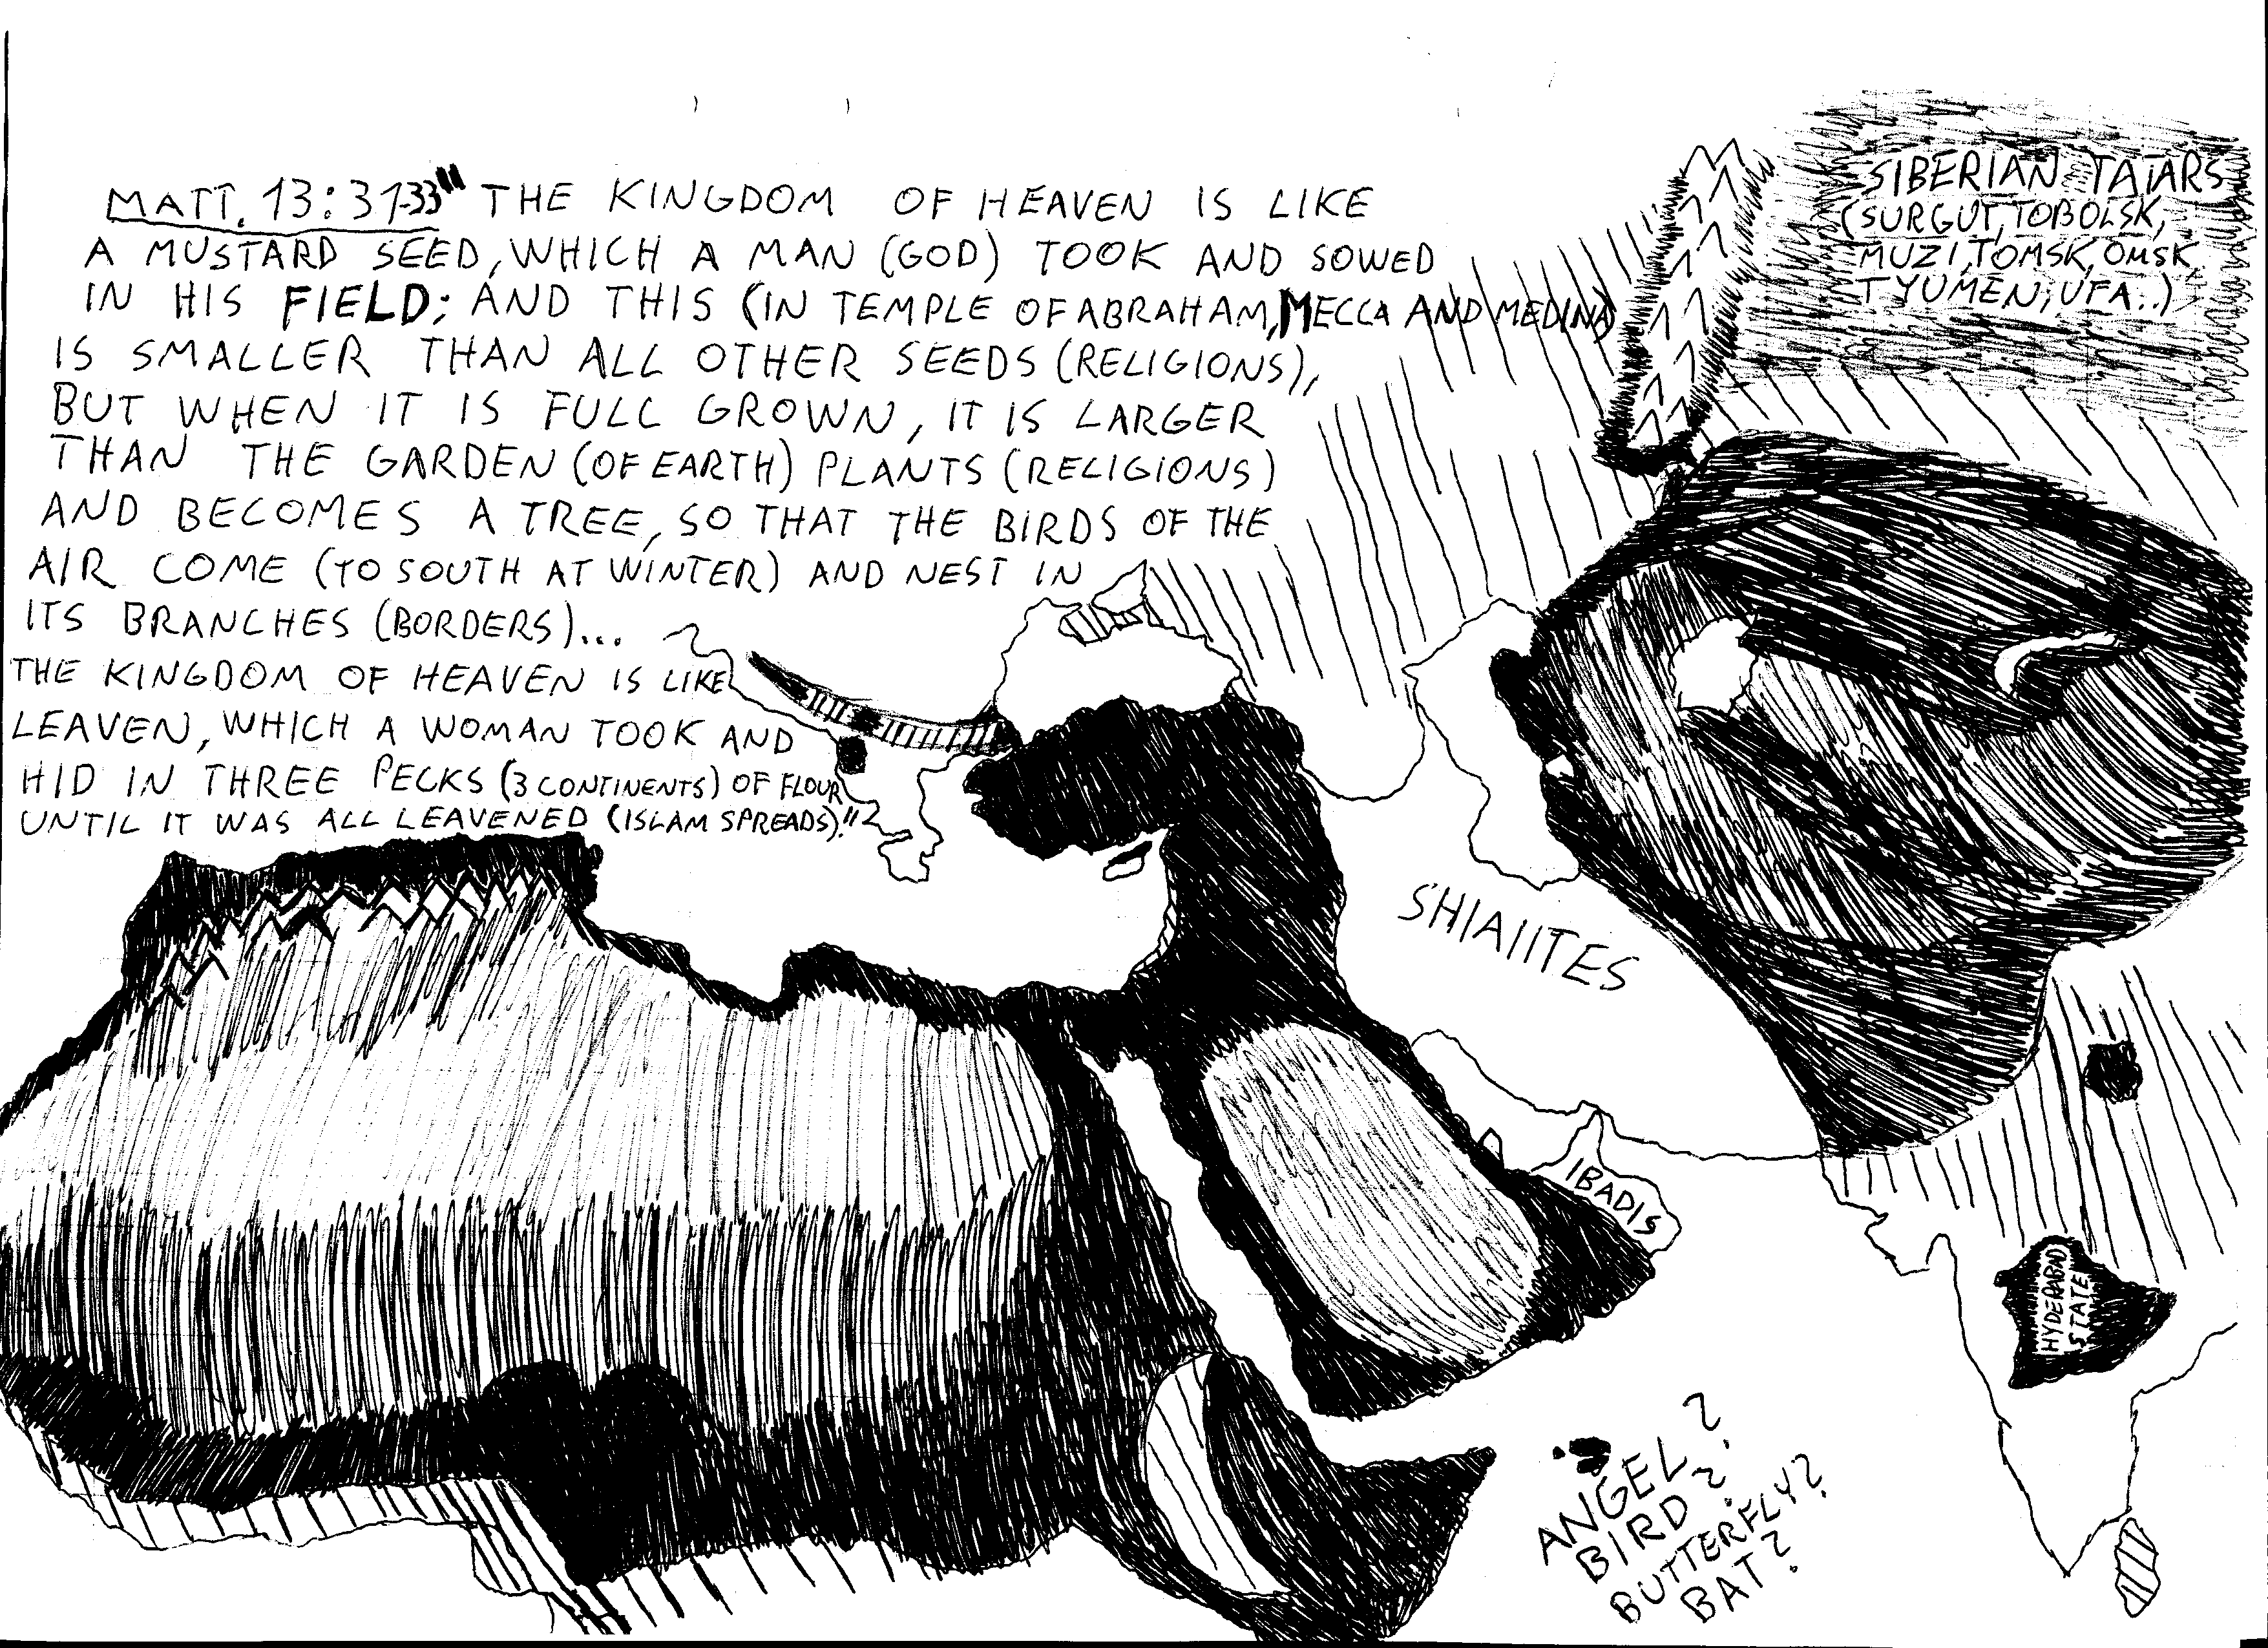 MATT. 13:31-33 "THE KINGDOM OF HEAVEN IS LIKE
A MUSTARD SEED, WHICH A MAN (GOD) TOOK AND SOWED
IN HIS FIELD; AND THIS (IN TEMPLE OF ABRAHAM, MECCA AND MEDINA)
IS SMALLER THAN ALL OTHER SEEDS (RELIGIONS),
BUT WHEN IT IS FULL GROWN, IT IS LARGER
THAN THE GARDEN (OF EARTH) PLANTS (RELIGIONS)
AND BECOMES A TREE, SO THAT THE BIRDS OF THE
AIR COME (TO SOUTH AT WINTER) AND NEST IN
ITS BRANCHES (BORDERS)...
THE KINGDOM OF HEAVEN IS LIKE
LEAVEN, WHICH A WOMAN TOOK AND
HID IN THREE PECKS (3 CONTINENTS) OF FLOUR
UNTIL IT WAS ALL LEAVENED (ISLAM SPREADS)."
SIBERIAN TATARS
(SURGUT, TOBOLSK,
MUZI, TOMSK, OMSK
TYUMEN, UFA..)
SHIAIITES
IBADIS
HYDERABAD
STATE
ANGEL?
BIRD?
BUTTERFLY?
BAT?